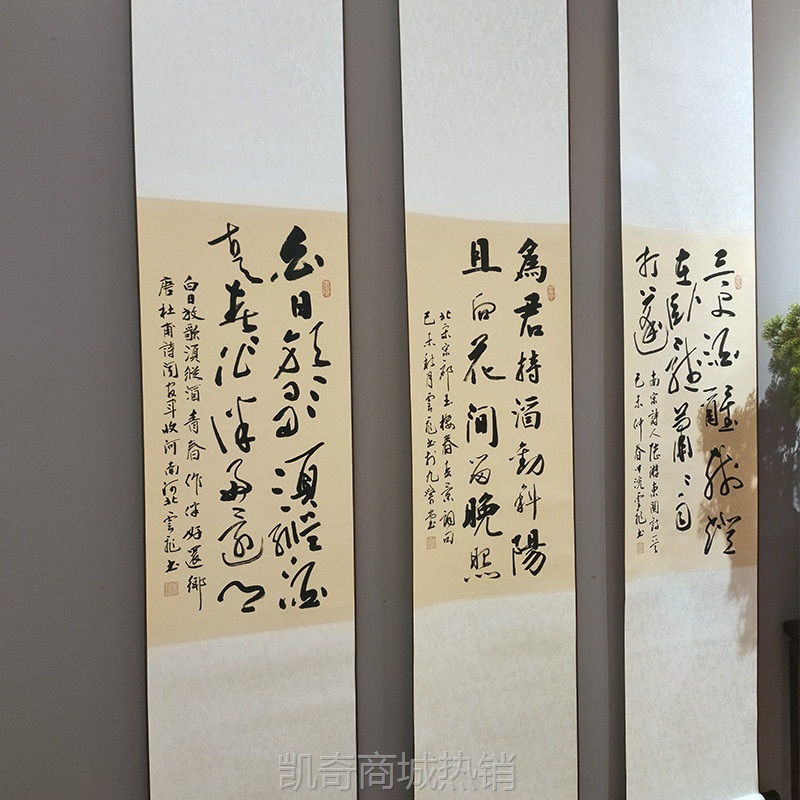 白日放歌須縱酒
青春作伴好還鄉
白日放歌須縱酒青春作伴好還鄉
唐杜甫詩聞官軍收河南河北雲龍書
為君持酒勸斜陽
且向花間留晚照
北宋宋祁玉樓春春景詞句
己未秋月雲龍書於九堂
三更酒醒殘燈
在臥聽蕭蕭雨
打篷
南宋詩人陸游東關詩一首
己未仲春雲龍書
凯奇商城热销